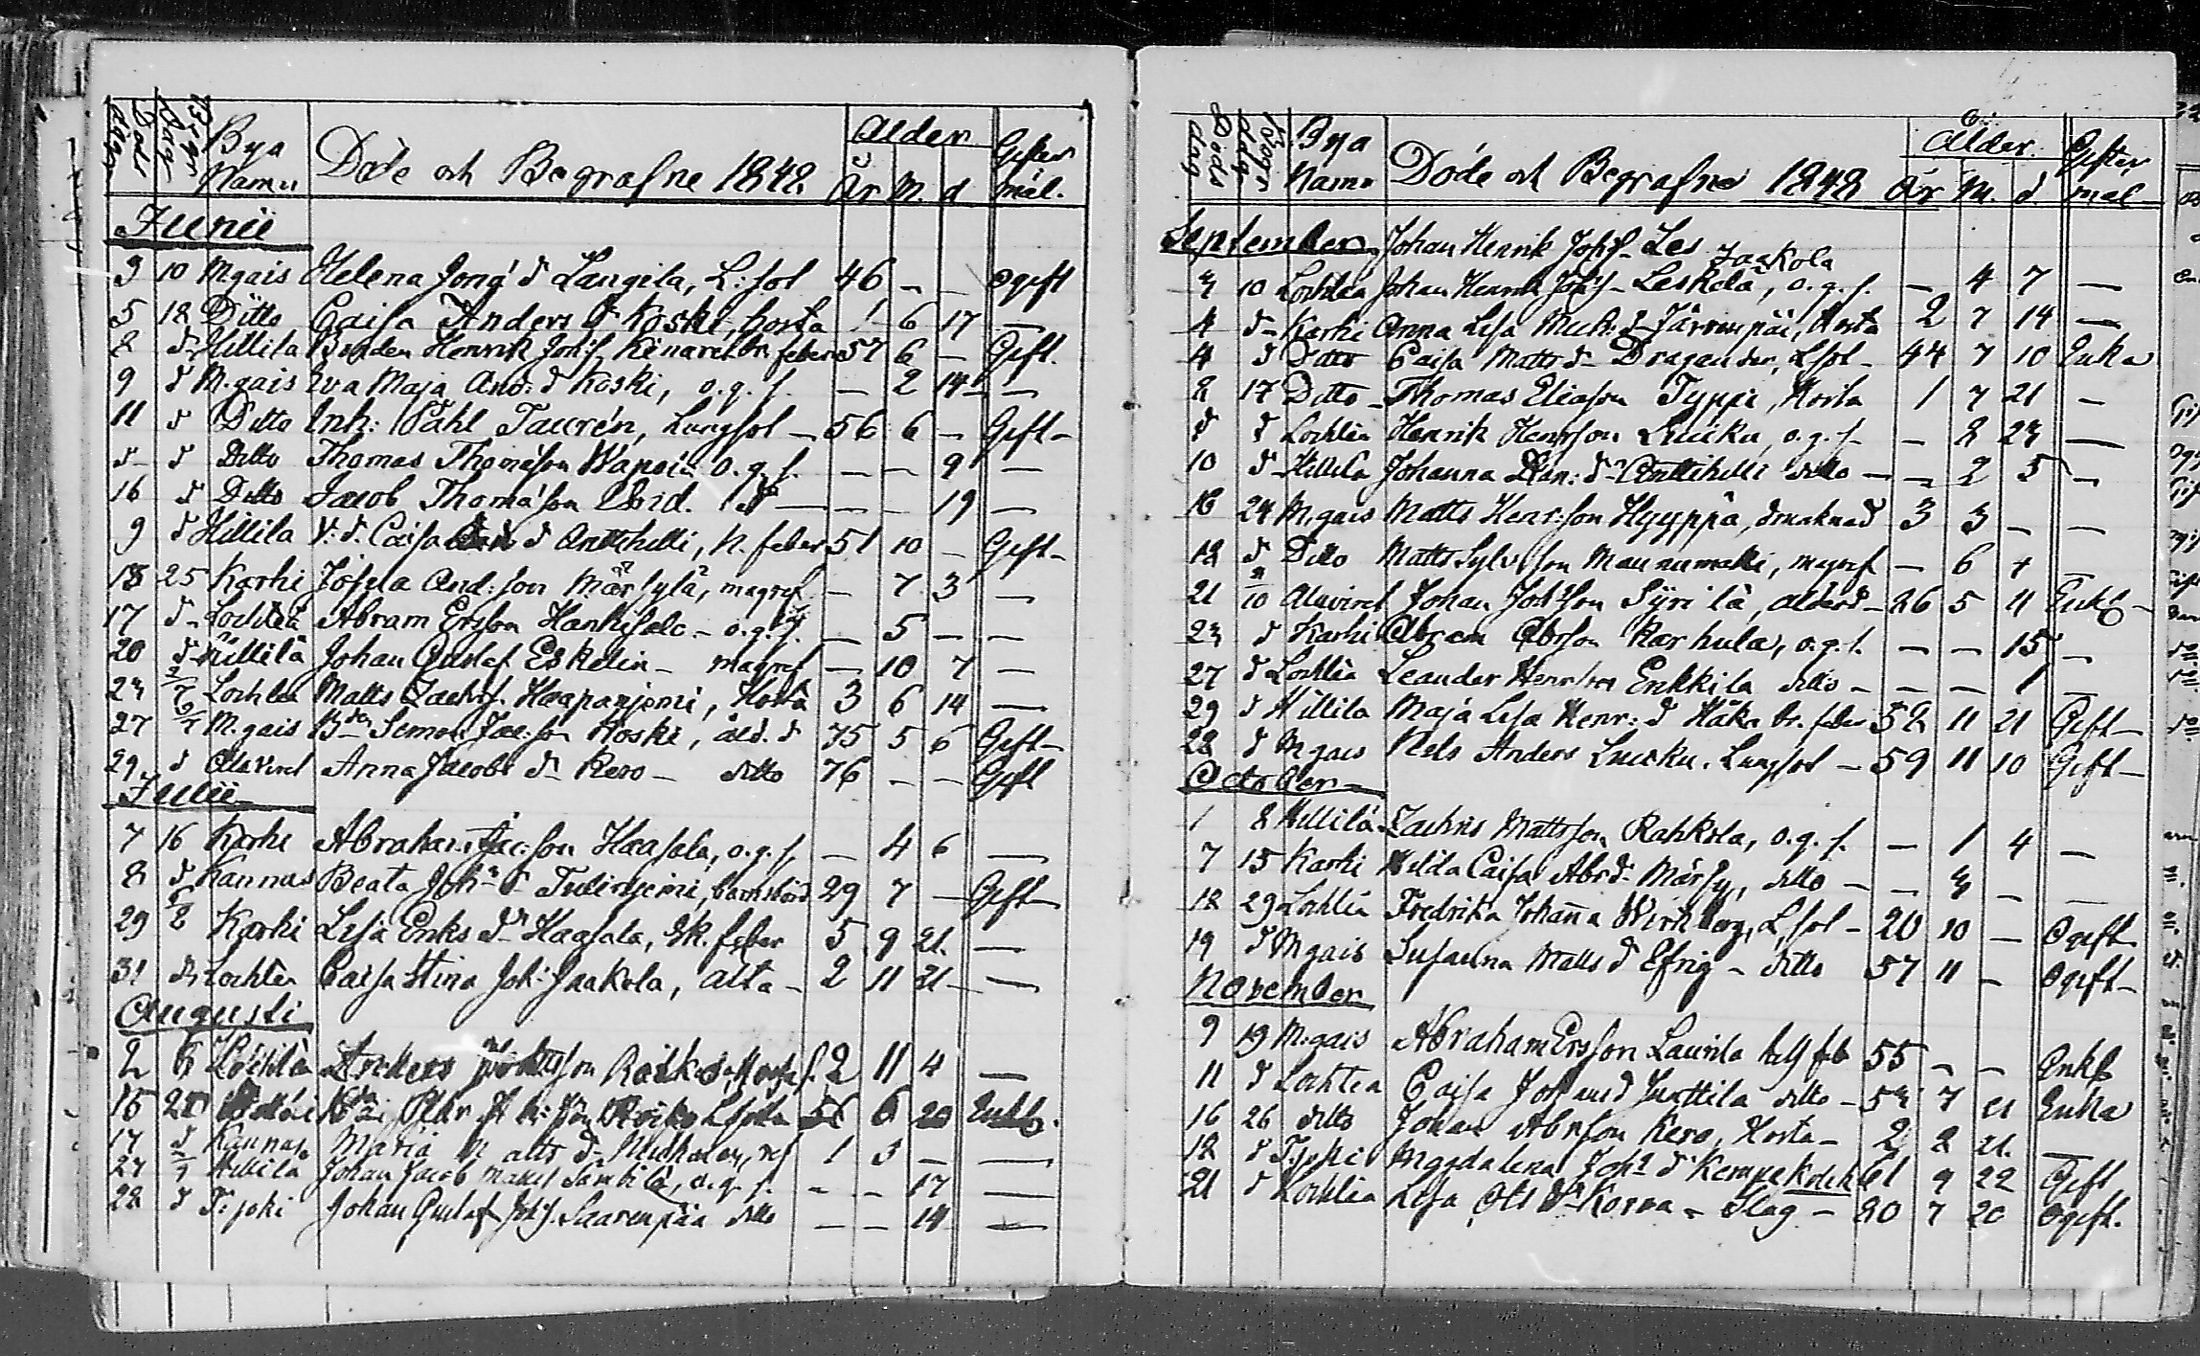 Döds dag Begr dag Bya Namn Döde och Begrafne 1848 Alder År M. d Gifter mål.
Junii
3 10 Mgais Helena Jong d Langila, L: sot 46 - - Ogift
5 18 Ditto Caisa Anders d Koski, hosta 1 6 17 -
8 d Hillilä Bonden Henrik Joh: feber 57 6 - Gift.
9 d M.gais Eva Maja And: d Koski, o.g.s. - 2 14 -
11 d Ditto Inh: Påhl Taurén, Lungsot - 56 6 - Gift-
d d Ditto Thomas Thomasson o.g.s. - - 9 -
16 d Ditto Jacob Thomasson d - - 19 -
9 d Hillila Caisa d Anttihilli, n. feber 51 10 - Gift-
18 25 Karhi And: son Märsylä, magref - 7 3 -
17 d Lochtea Abram Ersson o.g.s. - 5 - -
20 d Hillilä Johan Gustaf Eskelin - magref - 10 7 -
23 2/7 Lochtea Matts Haapaniemi, Hosta 3 6 14 -
27 2/7 M.gais Bdn Simon Jac: son Koski, åld. d 75 5 6 Gift-
29 d Alaviret Anna Jacobs d Kero - ditto 76 - - Gift
Julii
7 16 Karhi Abraham Jac: son Haasala, o.g.s, - 4 6 -
8 d Kannus Beata Joh: d Tuliniemi, barnsbörd 29 7 - Gift-
29 6/8 Karhi Lisa Eriks d Haasala, Sk. feber 5 9 21. -
31 d Lochtea Caisa Stina Joh: Jaakola, - 2 11 21 -
Augusti
2 6 Anders 2 11 4 -
15 20 56 6 20 Enkl.
17 d Kannus Maria Matts d 1 3 - -
27 3/9 Hillilä Johan Jacob o.g.s. - - 17 -
28 d T: joki Johan Gustaf Joh: Saarenpää ditto - - 14 -
Döds dag Begr dag Bya Namn Döde och Begrafne 1848 Alder. År M. d Gifter mål
September Johan Henrik Johs- Les Jaakola
3 10 Lochtea Johan Henrik Johs- Leskelä, o.g.s. - 4 7 -
4 d Karhi Anna Lisa Mich: d Järvenpää, Hosta 2 7 14 -
4 d Ditto Caisa Matts d- Dragander, Lsot - 44 7 10 Enka
8 17 Ditto Thomas Eliason Typpi, Hosta 1 7 21 -
d d Lochtea Henrik Henrsson Luuku, o.g.s. - 8 23 -
10 d Hillilä Johanna Dan: d Anttihilli ditto - - 2 5 -
16 24 M.gais Matts Henr: son Hyyppä, drunknad 3 3 - -
18 d Ditto Matts Sylv son Maunumäki, magref - 6 4 -
21 8/10 Alaviret Johan Johsson Syrilä, ålderd- 86 5 11 Enkl-
23 d Karhi Abram Abrson Karhula, o.g.s. - - 15 -
27 d Lochtea Leander Henrsson Erkkila ditto - - - 1 -
29 d Hillila Maja Lisa Henr: d Håka br. feber 58 11 21 Gift-
28 d M.gais Nils Anders Luuku. Lungsot - 59 11 10 Gift-
October
1 8 Hillilä Zachris Mattsson Rahkola, o.g.s. - 1 4 -
7 15 Karhi Hilda Caisa Abr d- Märsy, ditto - - 3 - -
18 29 Lochtea Fredrika Johanna Wirkberg, L sot - 20 10 - Ogift
19 d M.gais Susanna Matts d Efrig - ditto 57 11 - Ogift-
November
9 19 M.gais Abraham Ersson Laurila feb 55 - - Enkl
11 d Lochtea Caisa Joh d Junttila ditto - 53 7 11 Enka
16 26 ditto Johan Abrson Kero, Hosta- 2 8 21. -
18 d T: joki Magdalena Joh: d Kempe 61 9 22 Gift
21 d Lochtea Lisa d Korva - Slag - 80 7 20 Ogift.